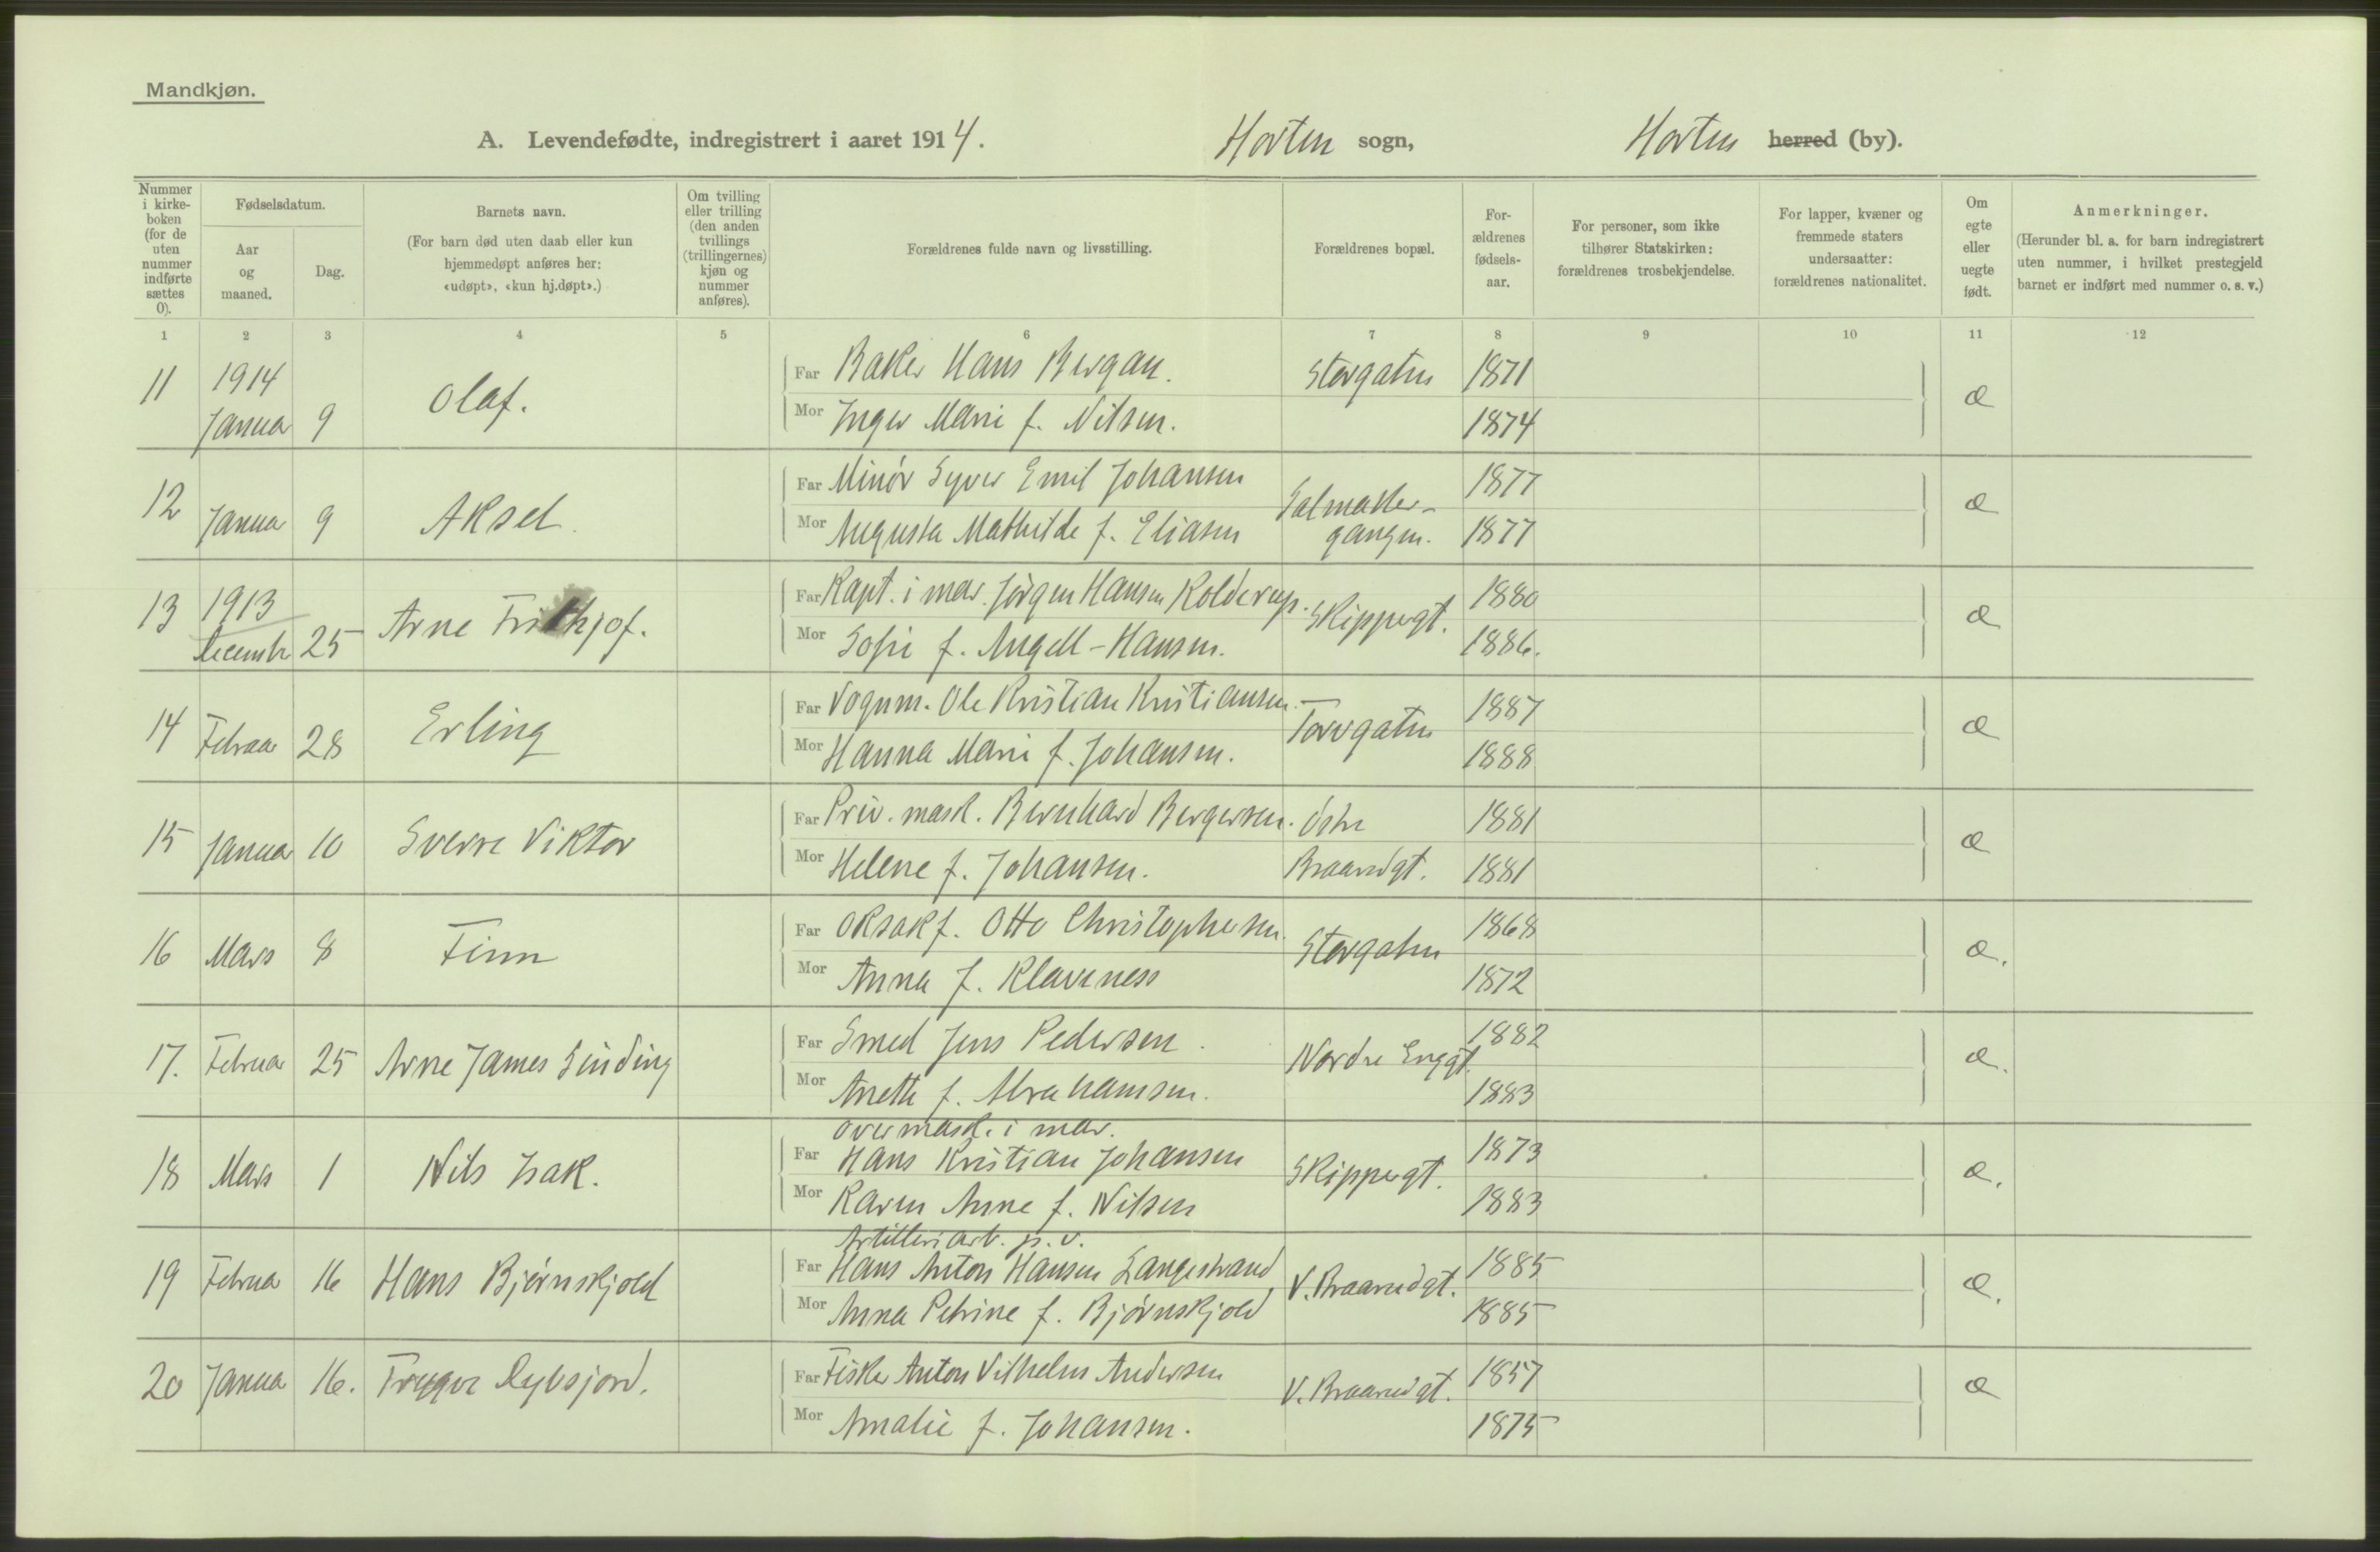 Mandkjøn.
A. Levendefødte, indregistrert i aaret 1914. Horten sogn, Horten herred (by).
Nummer i kirke-boken (for de uten nummer indførte sættes 0).
Fødselsdatum.
Aar og maaned.
Dag.
Barnets navn.
(For barn død uten daab eller kun hjemmedøpt anføres her: «udøpt», «kun hj.døpt».)
Om tvilling eller trilling (den anden tvillings (trillingernes) kjøn og nummer anføres).
Forældrenes fulde navn og livsstilling.
Forældrenes bopæl.
For-ældrenes fødsels-aar.
For personer, som ikke tilhører Statskirken: forældrenes trosbekjendelse.
For lapper, kvæner og fremmede staters undersaatter: forældrenes nationalitet.
Om egte eller uegte født.
Anmerkninger.
(Herunder bl. a. for barn indregistrert uten nummer, i hvilket prestegjeld barnet er indført med nummer o. s. v.)
1 2 3 4 5 6 7 8 9 10 11 12
11 1914 Janua 9 Olaf. Far Baker Hans Bergan. Storgaten 1871 Æ
Mor Inger Marie f. Nilsen. 1874
12 Janua 9 Aksel. Far Minør Syver Emil Johansen Salmaker- 1877 Æ
Mor Augusta Mathilde f. Eliasen gangen. 1877
13 1913 Decembr 25 Arne Frithjof. Far Kapt. i mar. Jörgen Hansen Kolderup. Skippergt. 1880 Æ
Mor Sofie f. Angell-Hansen. 1886.
14 Februar 28 Erling Far Vognm. Ole Kristian Kristiansen. Torvgaten 1887 Æ
Mor Hanna Marie f. Johansen. 1888
15 Janua 10 Sverre Viktor Far Priv. mask. Bernhard Bergersen. Östre 1881 Æ
Mor Helene f. Johansen. Braarudgt. 1881
16 Mars 8 Finn Far Oksakf. Otto Christophersen. Storgaten 1868 Æ.
Mor Anna f. Klaveness 1872
17. Februar 25 Arne James Sinding Far Smed Jens Pedersen. Nordre Enggt. 1882 Æ.
Mor Anette f. Abrahamsen. 1883
Overmask. i mar.
18 Mars 1 Nils Isak. Far Hans Kristian Johansen Skippergt. 1873 Æ.
Mor Karen Anne f. Nilsen 1883
Artilleriarb. p. v.
19 Februa 16 Hans Bjørnskjold Far Hans Anton Hansen Langestrand V. Braarudgt. 1885 Æ.
Mor Anna Petrine f. Bjørnskjold 1885
20 Janua 16. Trygve Far Fisker Anton Vilhelm Andersen V. Braarudgt. 1857 Æ
Mor Amalie f. Johansen. 1875